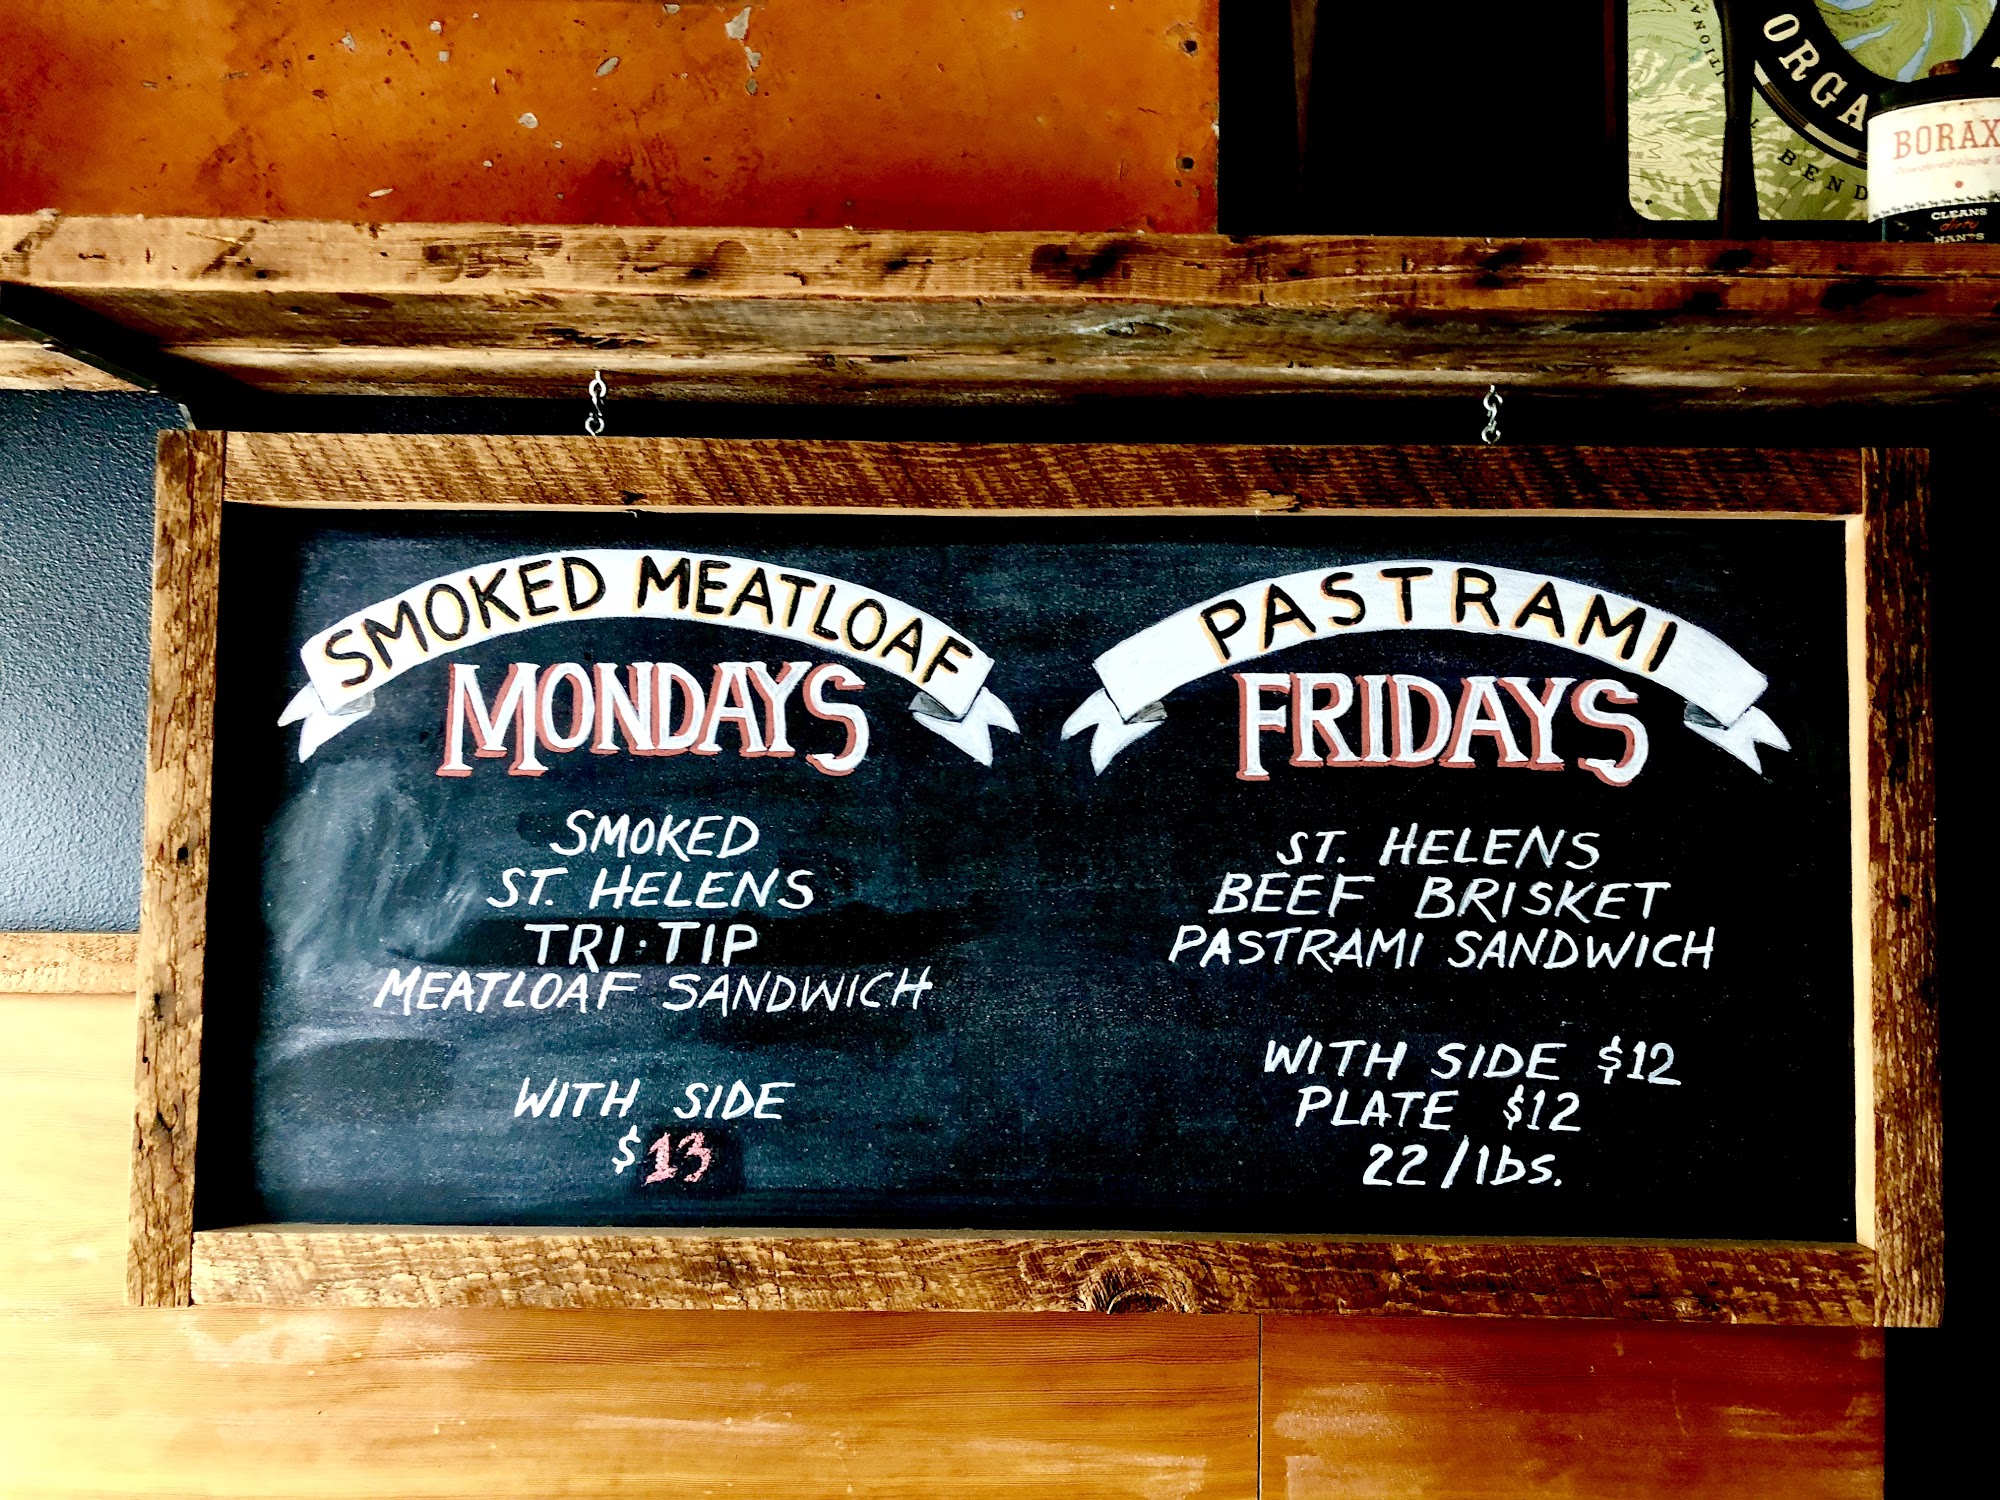 ORGA
BEND
BORAX
CLEANS
dirty
HANDS
SMOKED MEATLOAF
MONDAYS
SMOKED
ST. HELENS
TRI·TIP
MEATLOAF SANDWICH
WITH SIDE
$13
PASTRAMI
FRIDAYS
ST. HELENS
BEEF BRISKET
PASTRAMI SANDWICH
WITH SIDE $12
PLATE $12
22/lbs.